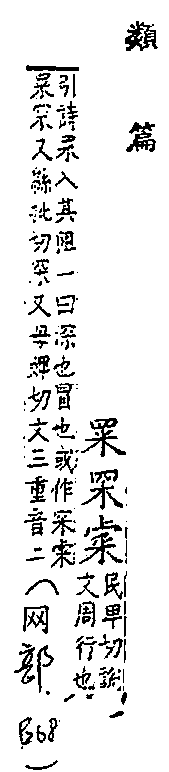 類篇
冞罙
民卑切說
文周行也
引詩冞入其阻一曰深也冒也或作
冞罙又緜批切罙又母婢切文三重音二
（网部, B68）